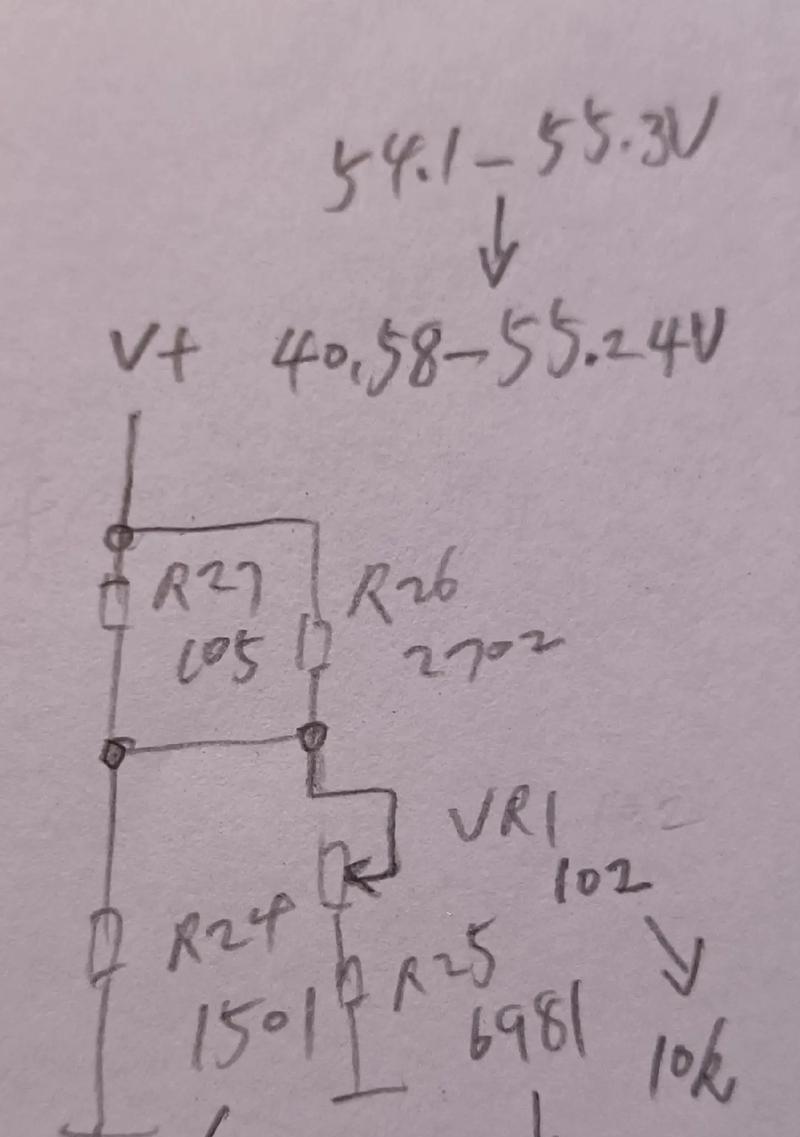 54.1 – 55.3V
↓
V+ 40.58–55.24V
R27 R26
105 2702
VR1
102
R24
R25
1501 6981 10k